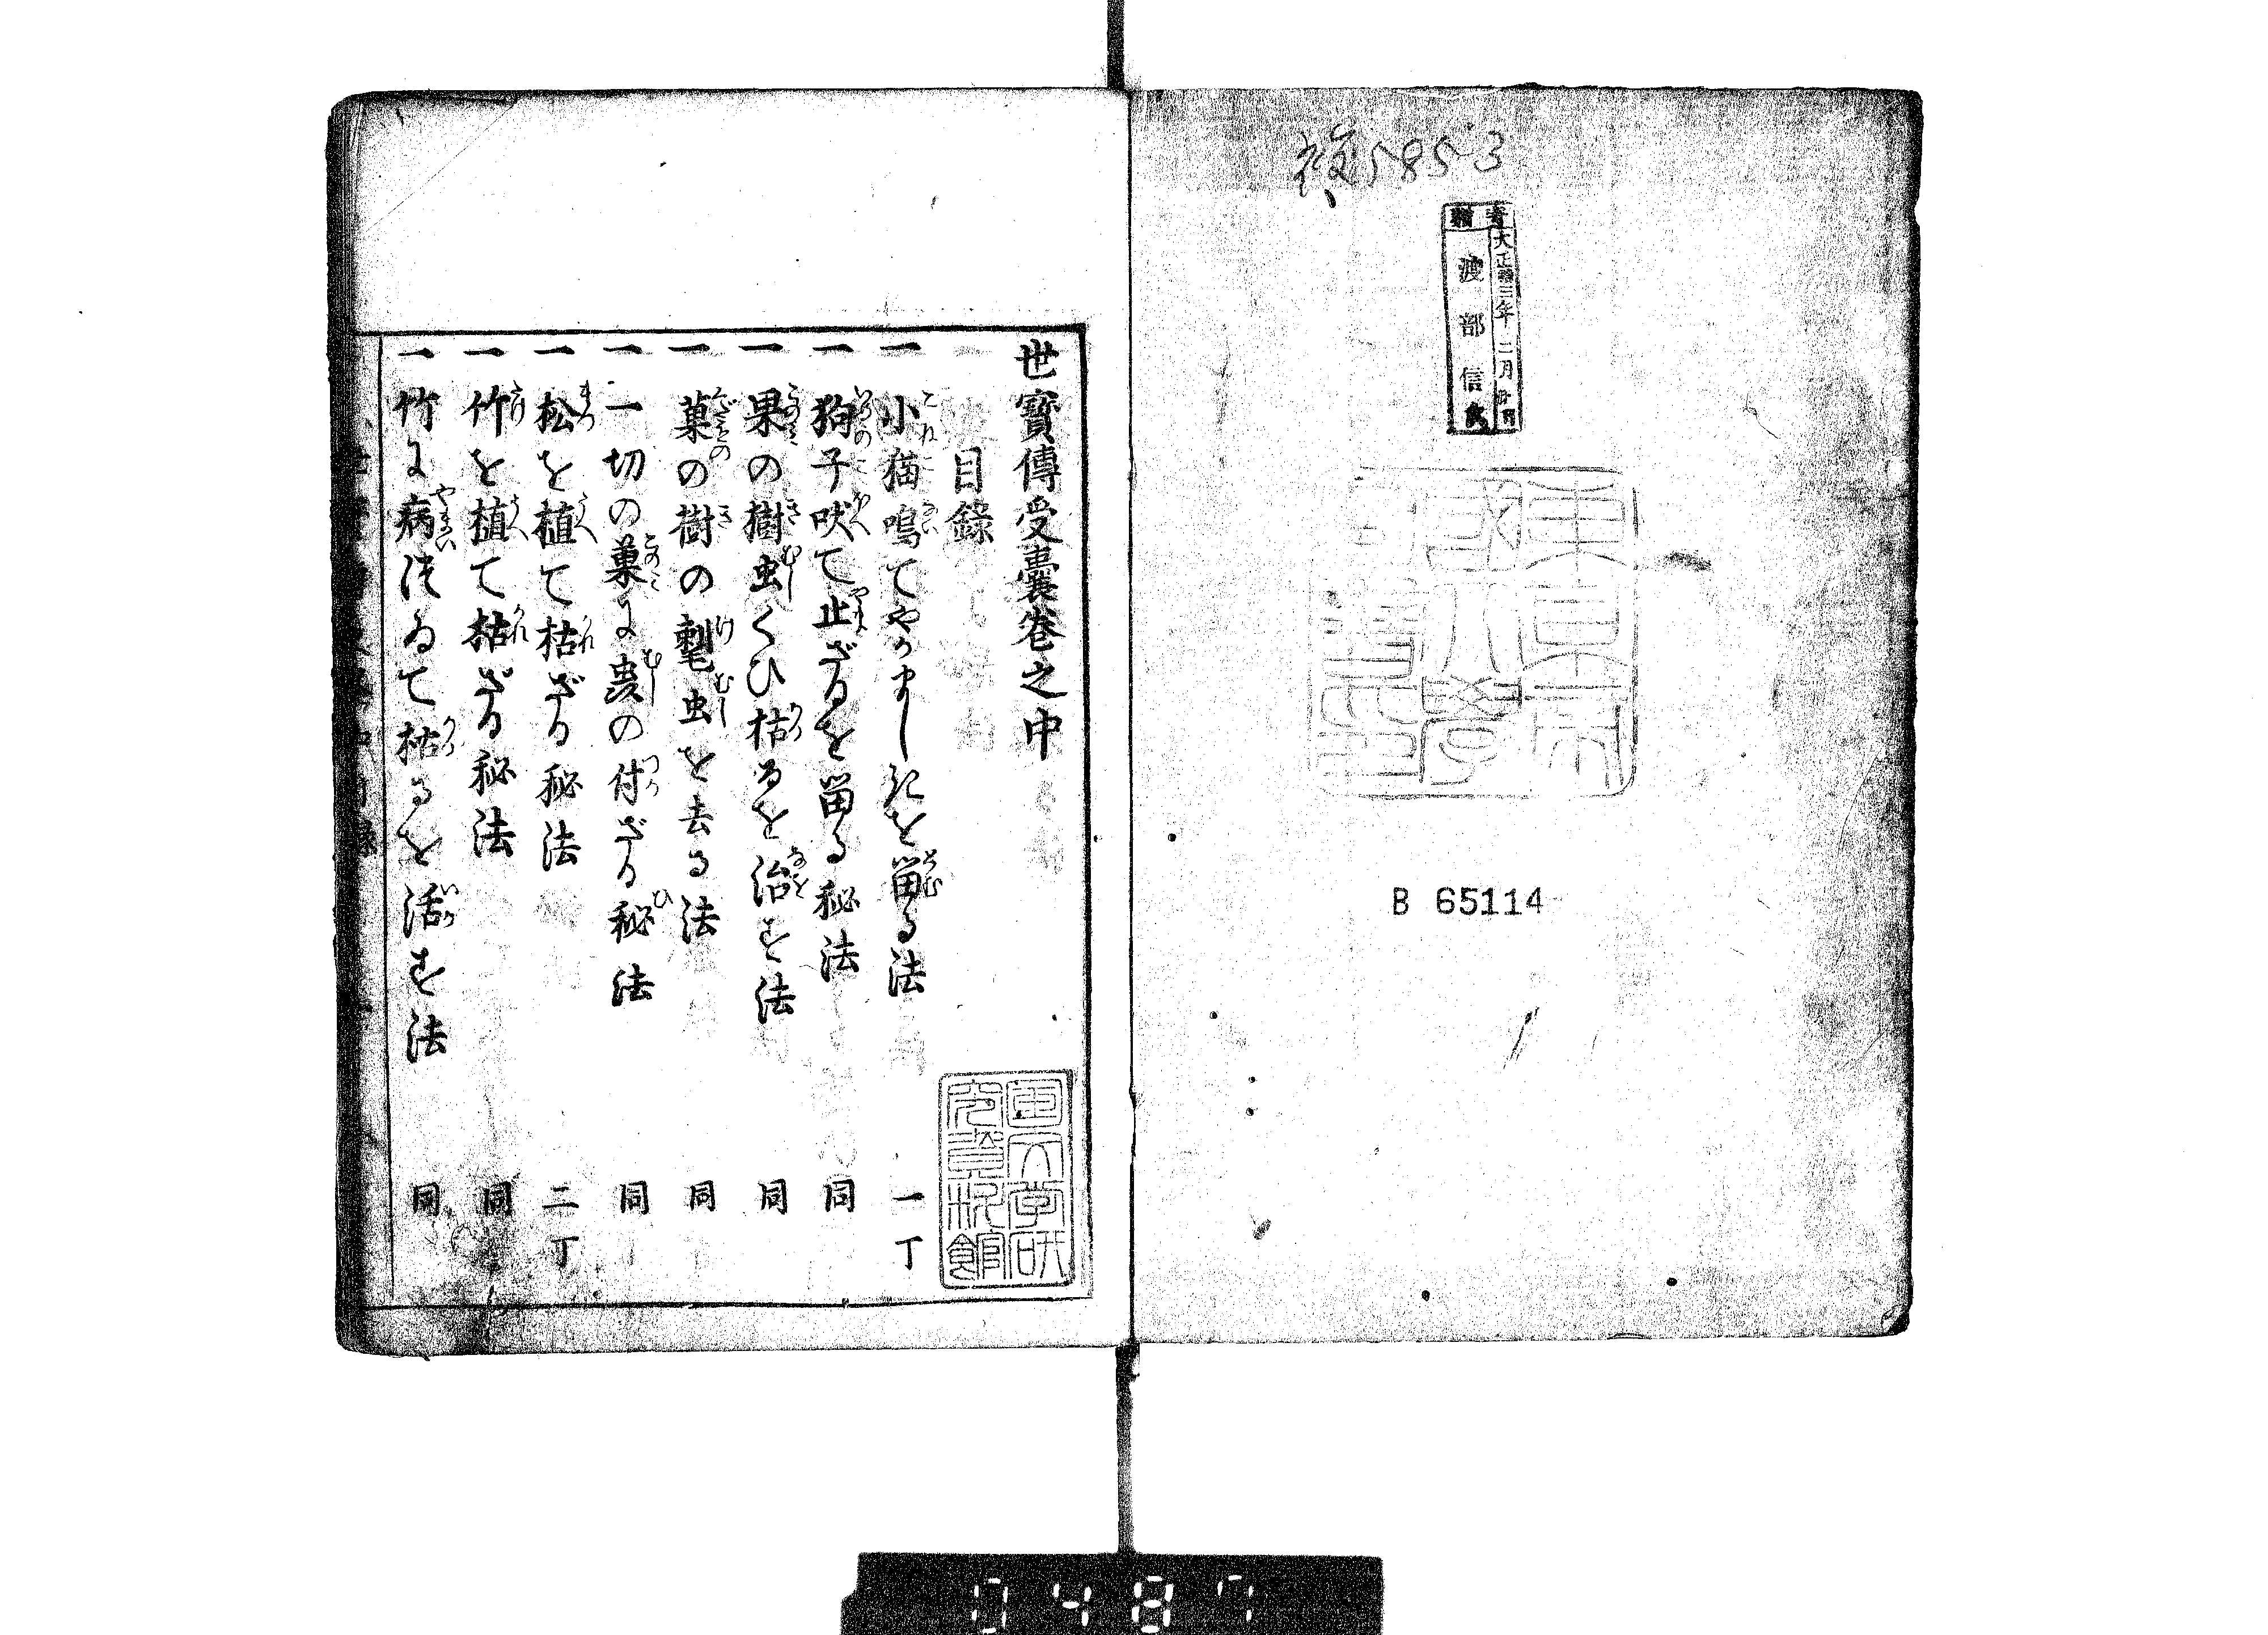 585 3
寄贈
大正拾三年二月
渡部信氏
東京帝
国大學
B 65114
世寶傳受囊卷之中
目錄
一 小猫鳴てやかましきを留る法 一丁
一 狗子吠て止ざるを留る秘法 同
一 果の樹虫くひ枯るを治す法 同
一 菓の樹の毛虫を去る法 同
一 一切の菓に虫の付ざる秘法 同
一 松を植て枯ざる秘法 二丁
一 竹を植て枯ざる秘法 同
一 竹に病つゐて枯るを活す法 同
国文学研
究資料館
0487